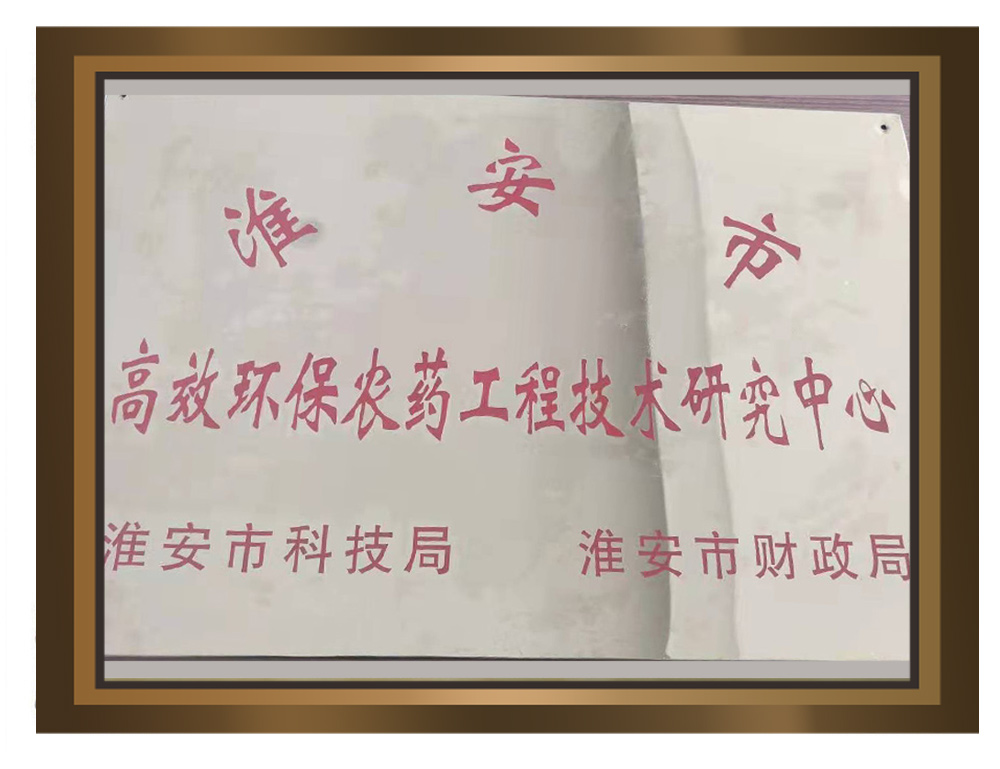 淮安市
高效环保农药工程技术研究中心
淮安市科技局 淮安市财政局